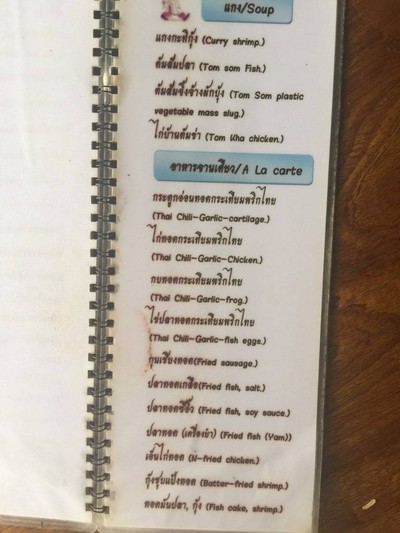 แกง/Soup
แกงกะทิกุ้ง (Curry shrimp.)
ต้มส้มปลา (Tom som Fish.)
ต้มส้มซี่โครง (Tom Som plastic
vegetable mass slug.)
ไก่บ้านต้มข่า (Tom Kha chicken.)
อาหารจานเดียว/A La carte
กระดูกอ่อนทอดกระเทียมพริกไทย
(Thai Chili-Garlic-cartilage.)
ไก่ทอดกระเทียมพริกไทย
(Thai Chili-Garlic-Chicken.)
กบทอดกระเทียมพริกไทย
(Thai Chili-Garlic-frog.)
ไข่ปลาทอดกระเทียมพริกไทย
(Thai Chili-Garlic-fish eggs.)
กุนเชียงทอด(Fried sausage.)
ปลาทอดเกลือ(Fried fish, salt.)
ปลาทอดซีอิ๊ว (Fried fish, soy sauce.)
ปลาทอด (เครื่องยำ) (Fried fish (Yam))
เอ็นไก่ทอด (N-fried chicken.)
กุ้งชุบแป้งทอด (Batter-fried shrimp.)
ทอดมันปลา, กุ้ง (Fish cake, shrimp.)